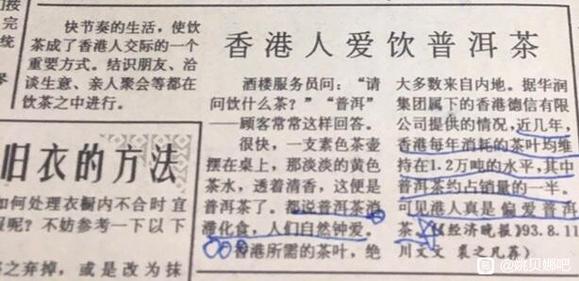 快节奏的生活，使饮
茶成了香港人交际的一个
重要方式。结识朋友、洽
谈生意、亲人聚会等都在
饮茶之中进行。
旧衣的方法
如何处理衣橱内不合时宜
呢？不妨参考一下以下
之弃掉，或是改为抹
香港人爱饮普洱茶
酒楼服务员问：“请
问饮什么茶？”“普洱”
——顾客常常这样回答。
很快，一支素色茶壶
摆在桌上，那淡淡的黄色
茶水，透着清香，这便是
普洱茶了。都说普洱茶消
滞化食，人们自然钟爱。
香港所需的茶叶，绝
大多数来自内地。据华润
集团属下的香港德信有限
公司提供的情况，近几年，
香港每年消耗的茶叶均维
持在1.2万吨的水平，其中
普洱茶约占销量的一半。
可见港人真是偏爱普洱
茶。《经济晚报》93.8.11
@姚贝娜吧